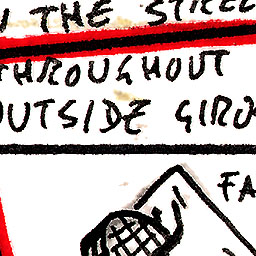 N THE STREE
THROUGHOUT
OUTSIDE GIRO
FA